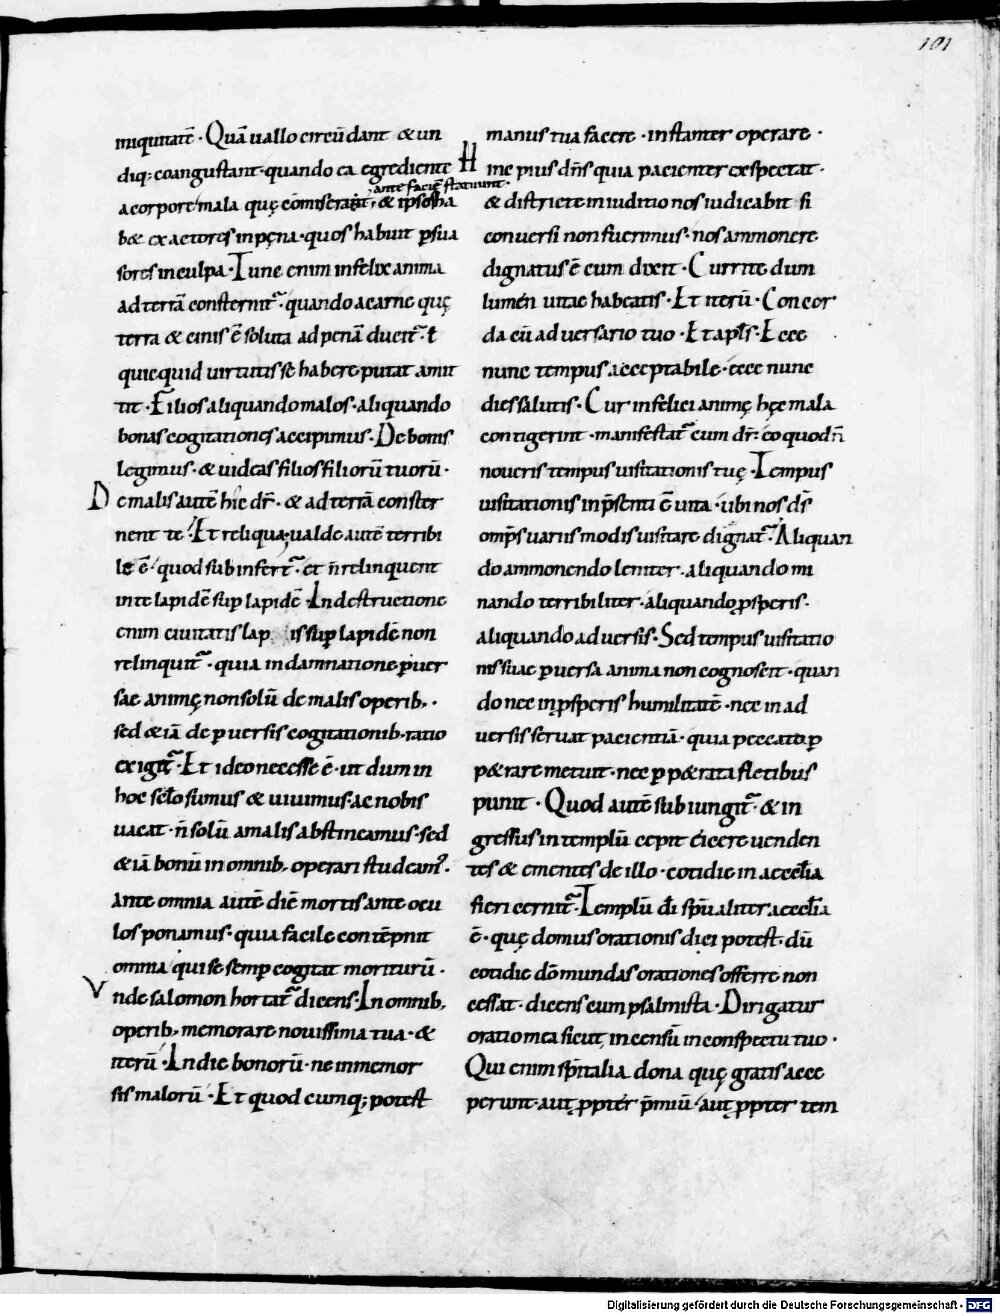 101
iniquitatē · Quā uallo circūdant & un
diq; coangustant · quando ea egrediente
ante faciē statuunt ·
a corpore mala quę cōmiserant, & ipsos ha
b& exactores in pęna · quos habuit p̄sua
sores in culpa · Tunc enim infelix anima
ad terrā consternit᷑ · quando a carne quę
terra & cinis ē soluta ad penā ducit᷑ · t̄
quicquid uirtutis se habere putat amit
tit · Filios aliquando malos · aliquando
bonas cogitationes accipimus · De bonis
legimus · & uideas filios filiorū tuorū ·
De malis autē hic dr̄ · & ad terrā conster
nent te · Et reliqua · ualde autē terribi
le ē · quod subinfert᷑ · et n̄ relinquent
in te lapidē sup lapidē · In destructione
enim ciuitatis lap is sup lapidē non
relinquit᷑ · quia in damnatione puer
sae animę non solū de malis operib; ·
sed &iā de peruersis cogitationib; ratio
exigit᷑ · Et ideo necesse ē · ut dum in
hoc sc̄lo sumus & uiuimus · ac nobis
uacat · n̄ solū a malis abstineamus · sed
&iā bonū in omnib; operari studeam᷒ ·
ante omnia autē diē mortis ante ocu
los ponamus · quia facile contēpnit
omnia qui se semp cogitat moriturū ·
Vnde salomon hortat᷑ dicens · In omnib;
operib; memorare nouissima tua · &
iterū · In die bonorū · ne inmemor
sis malorū · Et quodcumq; potest
manus tua facere · instanter operare ·
Hinc pius dn̄s quia pacienter exspectat ·
& districte in iuditio nos iudicabit si
conuersi non fuerimus · nos ammonere
dignatus ē cum dixit · Currite dum
lumen uitae habeatis · Et iterū · Concor
da cū aduersario tuo · Et apl̄s · Ecce
nunc tempus acceptabile · ecce nunc
dies salutis · Cur infelici animę hęc mala
contigerint · manifestat᷑ cum dr̄ · eo quod n̄
noueris tempus uisitationis tuę · Tempus
uisitationis in p̄senti ē uita · ubi nos dn̄s
omp̄s uariis modis uisitare dignat᷑ · Aliquan
do ammonendo leniter · aliquando mi
nando terribiliter · aliquando ꝓsperis ·
aliquando aduersis · Sed tempus uisitatio
nis suae puersa anima non cognoscit · quan
do nec in ꝓsperis humilitatē · nec in ad
uersis seruat pacientiā · quia peccata p
p&rare metuit · nec p p&rata fletibus
punit · Quod autē subiungit᷑ · & in
gressus in templū cepit eicere uenden
tes & ementes de illo · cotidie in aeccl̄ia
fieri cernit᷑ · Templū dī sp̄ualiter aeccl̄ia
ē · quę domus orationis dici potest · dū
cotidie dō mundas orationes offerre non
cessat · dicens cum psalmista · Dirigatur
oratio mea sicut incensū in conspectu tuo ·
Qui enim sp̄italia dona quę gratis acce
perunt · aut ꝓpter p̄miū · aut ꝓpter tem
Digitalisierung gefördert durch die Deutsche Forschungsgemeinschaft - DFG